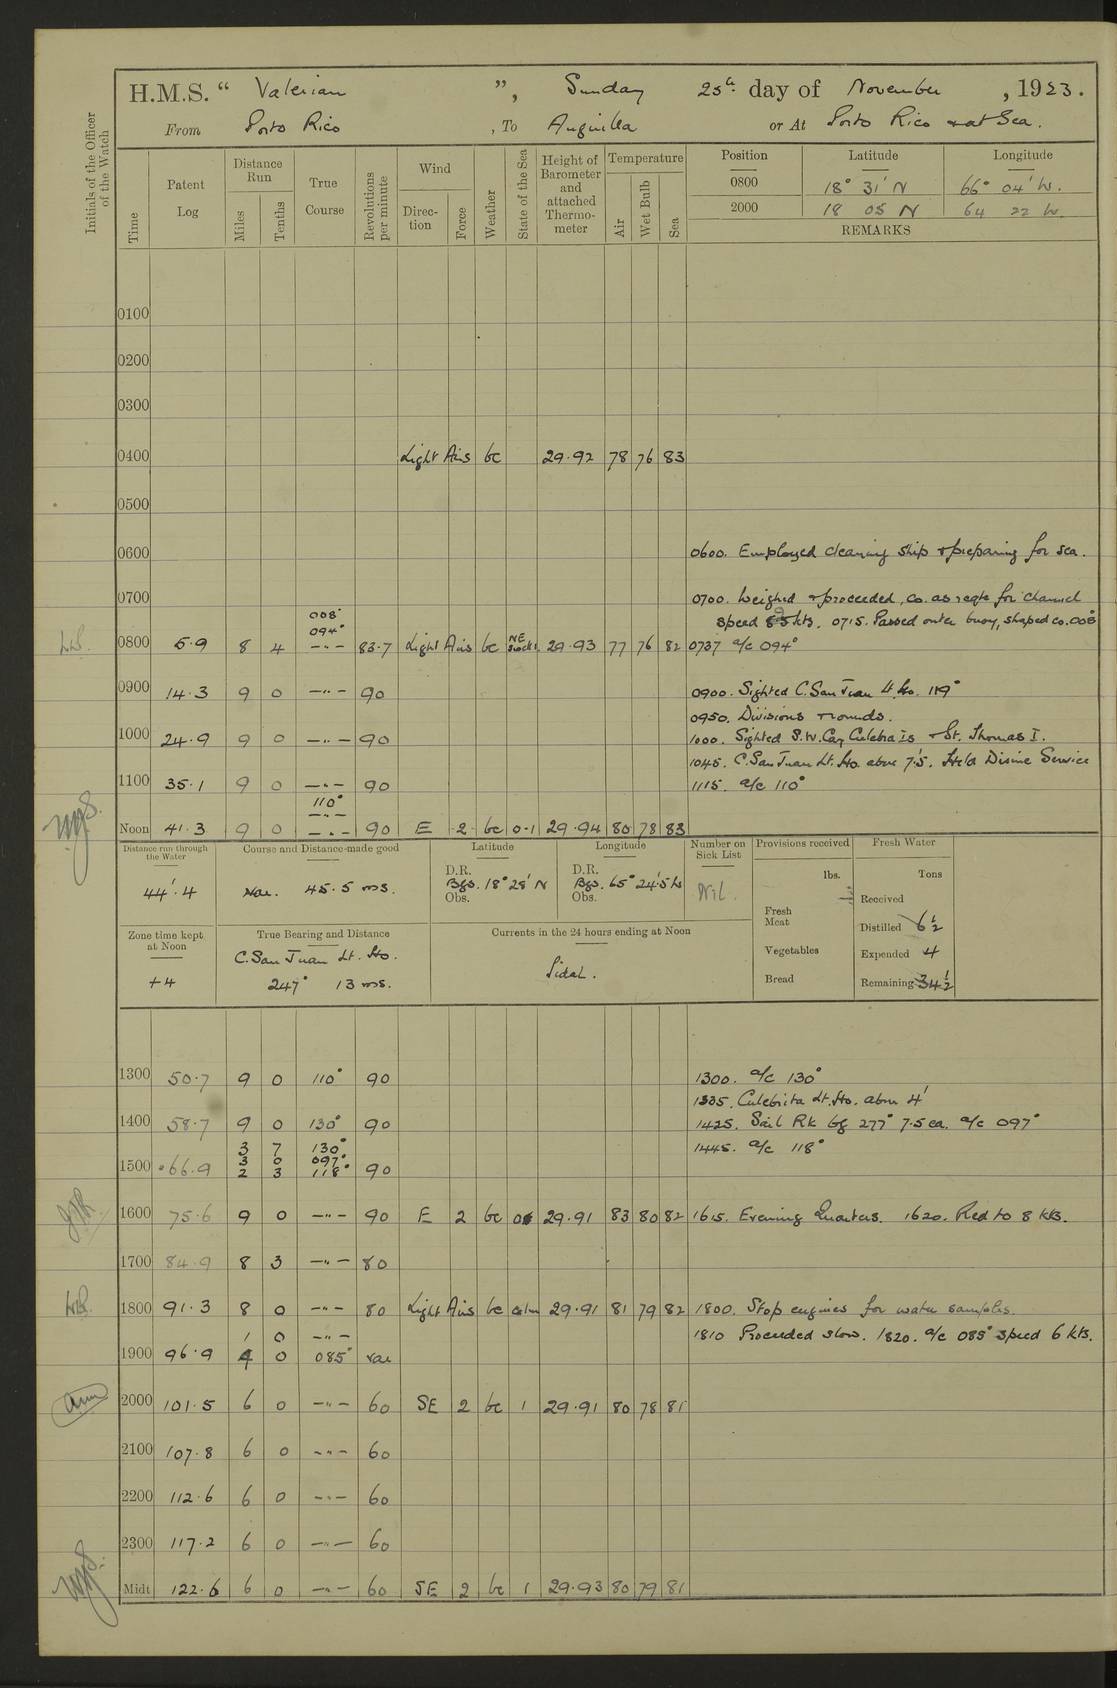 H.M.S. “ Valerian ”, Sunday 25th day of November, 1923.
From Porto Rico, To Anguilla or At Porto Rico & at Sea.
Initials of the Officer of the Watch
Time
Patent Log
Distance Run
Miles
Tenths
True Course
Revolutions per minute
Wind
Direction
Force
Weather
State of the Sea
Height of Barometer and attached Thermometer
Temperature
Air
Wet Bulb
Sea
Position Latitude Longitude
0800 18° 31' N 66° 04' W.
2000 18 05 N 64 22 W
REMARKS
0100
0200
0300
0400 Light Airs bc 29.92 78 76 83
0500
0600 0600. Employed cleaning ship & preparing for sea.
0700 0700. Weighed & proceeded, co. as reqte for channel
speed kts. 0715. Passed outer buoy, shaped co. 008°
008°
094°
0800 5.9 8 4 —"— 83.7 Light Airs bc NE 29.93 77 76 82 0737 a/c 094°
0900 14.3 9 0 —"— 90 0900. Sighted C. San Juan Lt. Ho. 119°
0950. Divisions & rounds.
1000 24.9 9 0 —"— 90 1000. Sighted S.W. Cay Culebra Is & St. Thomas I.
1045. C. San Juan Lt. Ho. abm 7'.5. Held Divine Service
1100 35.1 9 0 —"— 90 1115. a/c 110°
110°
—"—
Noon 41.3 9 0 —"— 90 E 2 bc 0-1 29.94 80 78 83
Distance run through the Water
44'.4
Course and Distance made good
Var. 45.5 ms.
Latitude
D.R.
Bgs. 18° 28' N
Obs.
Longitude
D.R.
Bgs. 65° 24'.5 W
Obs.
Number on Sick List
Nil.
Provisions received
lbs.
Fresh Meat
Vegetables
Bread
Fresh Water
Tons
Received
Distilled 6½
Expended 4
Remaining 34½
Zone time kept at Noon
+4
True Bearing and Distance
C. San Juan Lt. Ho.
247° 13 ms.
Currents in the 24 hours ending at Noon
Tidal.
1300 50.7 9 0 110° 90 1300. a/c 130°
1335. Culebrita Lt. Ho. abm 4'
1400 58.7 9 0 130° 90 1425. Sail Rk bg 277° 7.5 ca. a/c 097°
3 7 130° 1445. a/c 118°
3 0 097°
1500 66.9 2 3 118° 90
1600 75.6 9 0 —"— 90 E 2 bc 29.91 83 80 82 1615. Evening Quarters. 1620. Red to 8 kts.
1700 84.9 8 3 —"— 80
1800 91.3 8 0 —"— 80 Light Airs bc calm 29.91 81 79 82 1800. Stop engines for water samples.
1 0 —"— 1810 Proceeded slow. 1820. a/c 085° speed 6 kts.
1900 96.9 4 0 085° var
2000 101.5 6 0 —"— 60 SE 2 bc 1 29.91 80 78 81
2100 107.8 6 0 —"— 60
2200 112.6 6 0 —"— 60
2300 117.2 6 0 —"— 60
Midt 122.6 6 0 —"— 60 SE 2 bc 1 29.93 80 79 81